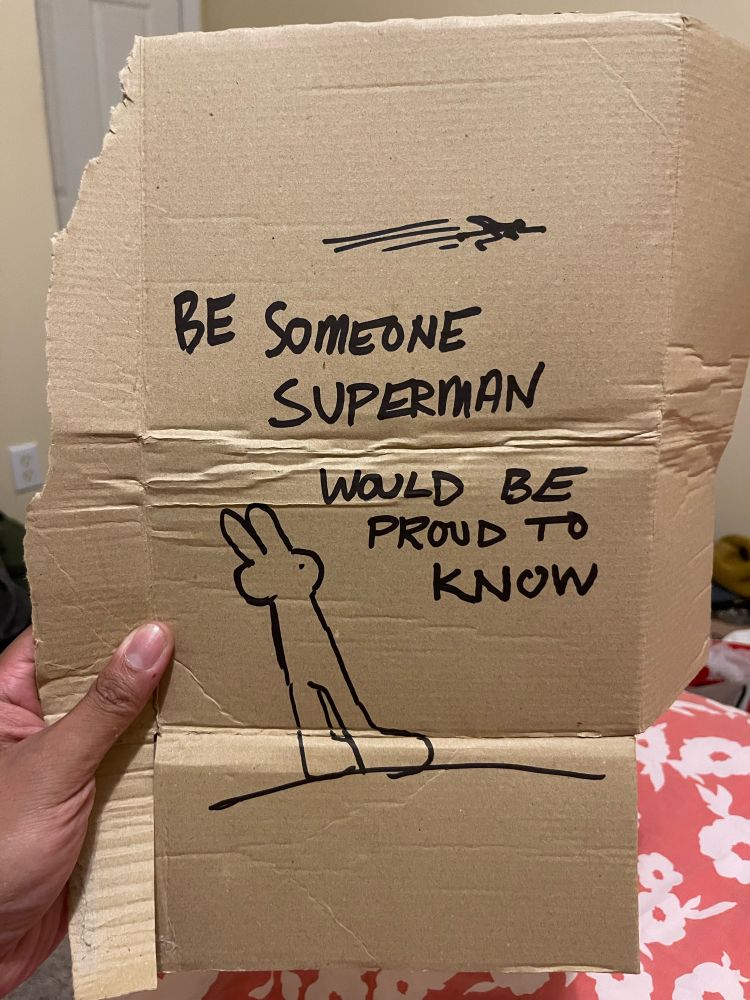 BE SOMEONE
SUPERMAN
WOULD BE
PROUD TO
KNOW